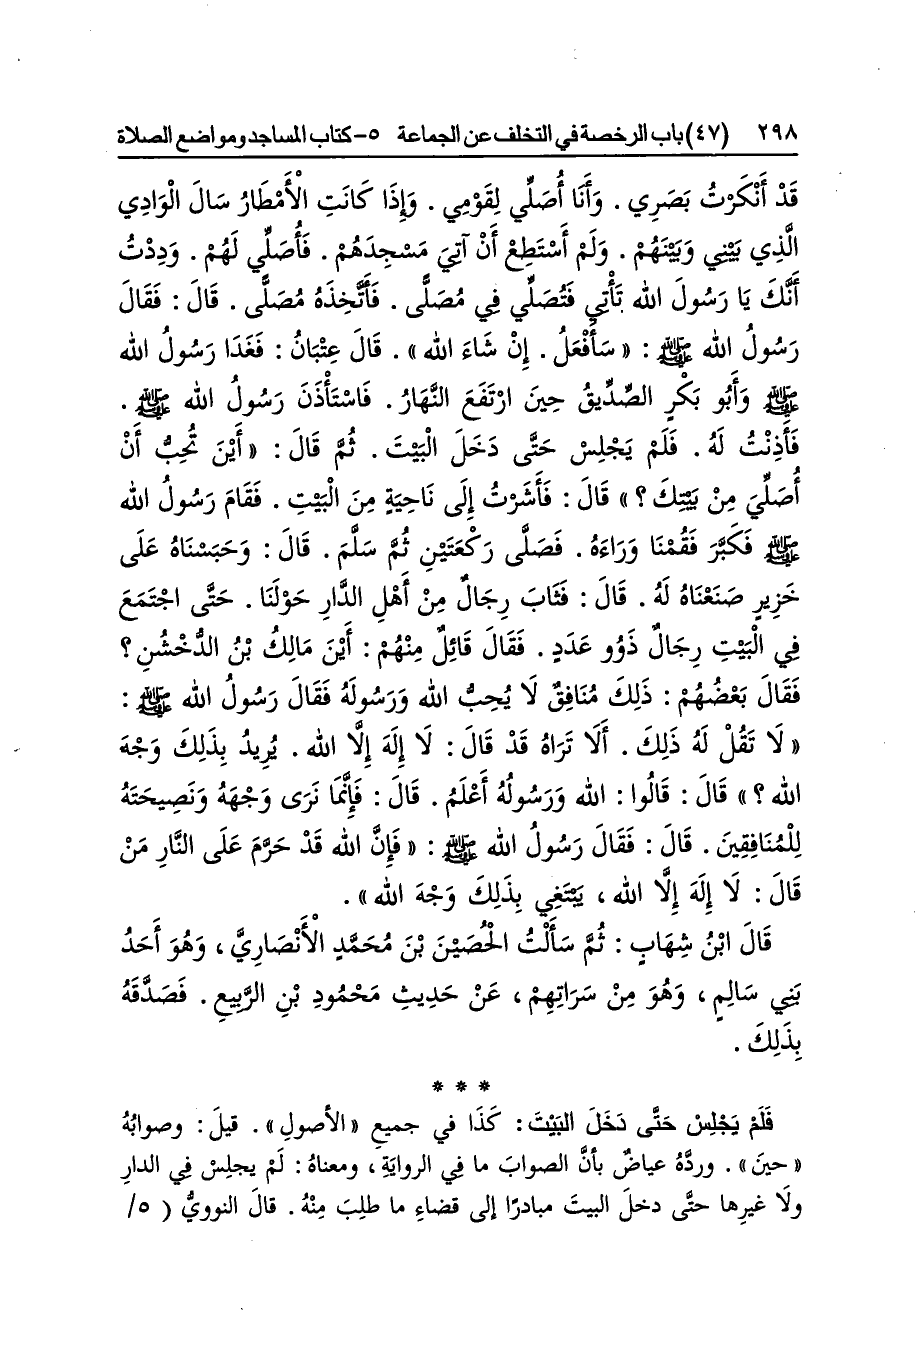 ٢٩٨ (٤٧) باب الرخصة في التخلف عن الجماعة ٥- كتاب المساجد ومواضع الصلاة
قَدْ أَنْكَرْتُ بَصَرِي . وَأَنَا أُصَلِّي لِقَوْمِي . وَإِذَا كَانَتِ الْأَمْطَارُ سَالَ الْوَادِي
الَّذِي بَيْنِي وَبَيْنَهُمْ . وَلَمْ أَسْتَطِعْ أَنْ آتِيَ مَسْجِدَهُمْ . فَأُصَلِّي لَهُمْ . وَدِدْتُ
أَنَّكَ يَا رَسُولَ الله تَأْتِي فَتُصَلِّي فِي مُصَلًّى . فَأَتَّخِذَهُ مُصَلًّى . قَالَ : فَقَالَ
رَسُولُ الله ﷺ : « سَأَفْعَلُ . إِنْ شَاءَ الله » . قَالَ عِتْبَانُ : فَغَدَا رَسُولُ الله
ﷺ وَأَبُو بَكْرٍ الصِّدِّيقُ حِينَ ارْتَفَعَ النَّهَارُ . فَاسْتَأْذَنَ رَسُولُ الله ﷺ .
فَأَذِنْتُ لَهُ . فَلَمْ يَجْلِسْ حَتَّى دَخَلَ الْبَيْتَ . ثُمَّ قَالَ : « أَيْنَ تُحِبُّ أَنْ
أُصَلِّيَ مِنْ بَيْتِكَ ؟ » قَالَ : فَأَشَرْتُ إِلَى نَاحِيَةٍ مِنَ الْبَيْتِ . فَقَامَ رَسُولُ الله
ﷺ فَكَبَّرَ فَقُمْنَا وَرَاءَهُ . فَصَلَّى رَكْعَتَيْنِ ثُمَّ سَلَّمَ . قَالَ : وَحَبَسْنَاهُ عَلَى
خَزِيرٍ صَنَعْنَاهُ لَهُ . قَالَ : فَثَابَ رِجَالٌ مِنْ أَهْلِ الدَّارِ حَوْلَنَا . حَتَّى اجْتَمَعَ
فِي الْبَيْتِ رِجَالٌ ذَوُو عَدَدٍ . فَقَالَ قَائِلٌ مِنْهُمْ : أَيْنَ مَالِكُ بْنُ الدُّخْشُنِ ؟
فَقَالَ بَعْضُهُمْ : ذَلِكَ مُنَافِقٌ لَا يُحِبُّ الله وَرَسُولَهُ فَقَالَ رَسُولُ الله ﷺ :
« لَا تَقُلْ لَهُ ذَلِكَ . أَلَا تَرَاهُ قَدْ قَالَ : لَا إِلَهَ إِلَّا الله . يُرِيدُ بِذَلِكَ وَجْهَ
الله ؟ » قَالَ : قَالُوا : الله وَرَسُولُهُ أَعْلَمُ . قَالَ : فَإِنَّمَا نَرَى وَجْهَهُ وَنَصِيحَتَهُ
لِلْمُنَافِقِينَ . قَالَ : فَقَالَ رَسُولُ الله ﷺ : « فَإِنَّ الله قَدْ حَرَّمَ عَلَى النَّارِ مَنْ
قَالَ : لَا إِلَهَ إِلَّا الله ، يَبْتَغِي بِذَلِكَ وَجْهَ الله » .
قَالَ ابْنُ شِهَابٍ : ثُمَّ سَأَلْتُ الْحُصَيْنَ بْنَ مُحَمَّدٍ الْأَنْصَارِيَّ ، وَهُوَ أَحَدُ
بَنِي سَالِمٍ ، وَهُوَ مِنْ سَرَاتِهِمْ ، عَنْ حَدِيثِ مَحْمُودِ بْنِ الرَّبِيعِ . فَصَدَّقَهُ
بِذَلِكَ .
* * *
فَلَمْ يَجْلِسْ حَتَّى دَخَلَ البَيْتَ : كَذَا في جميعِ « الأصولِ » . قيلَ : وصوابُهُ
« حينَ » . وردَّهُ عياضٌ بأنَّ الصوابَ ما فِي الروايَةِ ، ومعناهُ : لَمْ يجلِسْ فِي الدارِ
ولَا غيرِها حتَّى دخلَ البيتَ مبادرًا إلى قضاءِ ما طلِبَ مِنْهُ . قالَ النوويُّ ( ٥/